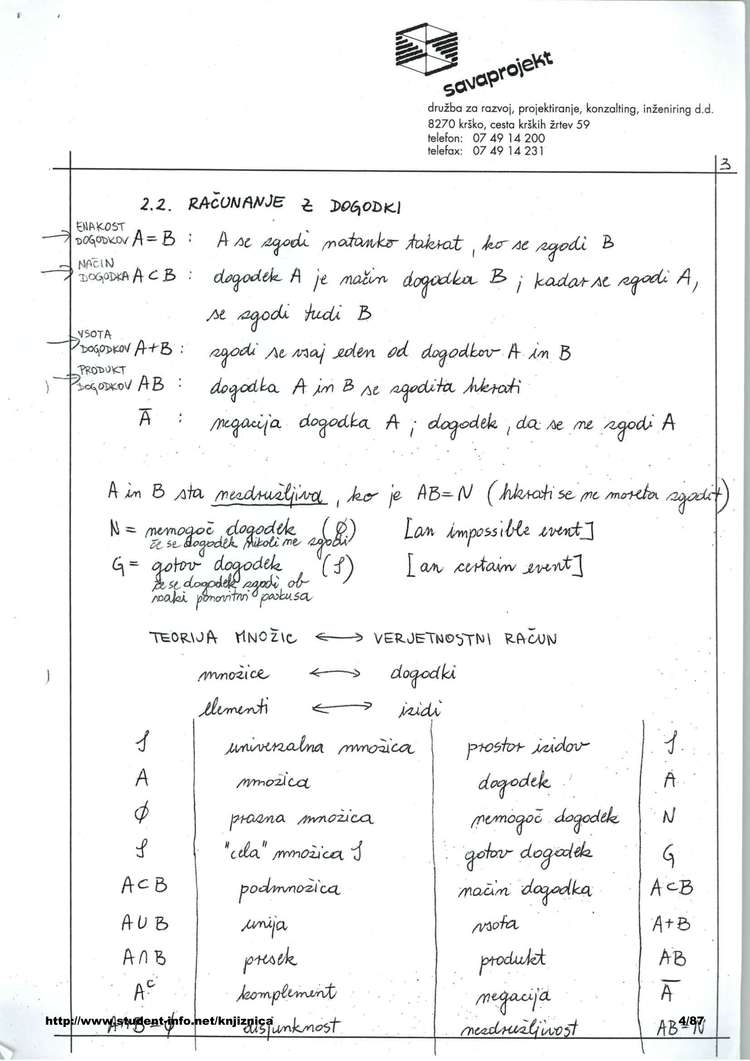 savaprojekt
družba za razvoj, projektiranje, konzalting, inženiring d.d.
8270 krško, cesta krških žrtev 59
telefon: 07 49 14 200
telefax: 07 49 14 231
3
2.2. RAČUNANJE Z DOGODKI
ENAKOST
DOGODKOV A = B : A se zgodi natanko takrat, ko se zgodi B
NAČIN
DOGODKA A ⊂ B : dogodek A je način dogodka B ; kadar se zgodi A,
se zgodi tudi B
VSOTA
DOGODKOV A+B : zgodi se vsaj eden od dogodkov A in B
PRODUKT
DOGODKOV AB : dogodka A in B se zgodita hkrati
A̅ : negacija dogodka A ; dogodek, da se ne zgodi A
A in B sta nezdružljiva, ko je AB=N (hkrati se ne moreta zgoditi)
N = nemogoč dogodek (∅) [an impossible event]
če se dogodek nikoli ne zgodi
G = gotov dogodek (S) [an certain event]
če se dogodek zgodi ob
vsaki ponovitvi poskusa
TEORIJA MNOŽIC ⟷ VERJETNOSTNI RAČUN
množice ⟷ dogodki
elementi ⟷ izidi
S univerzalna množica prostor izidov S
A množica dogodek A
∅ prazna množica nemogoč dogodek N
S "cela" množica S gotov dogodek G
A⊂B podmnožica način dogodka A⊂B
A∪B unija vsota A+B
A∩B presek produkt AB
Aᶜ komplement negacija A̅
A∩B=∅ disjunknost nezdružljivost AB=N
http://www.student-info.net/knjiznica 4/87